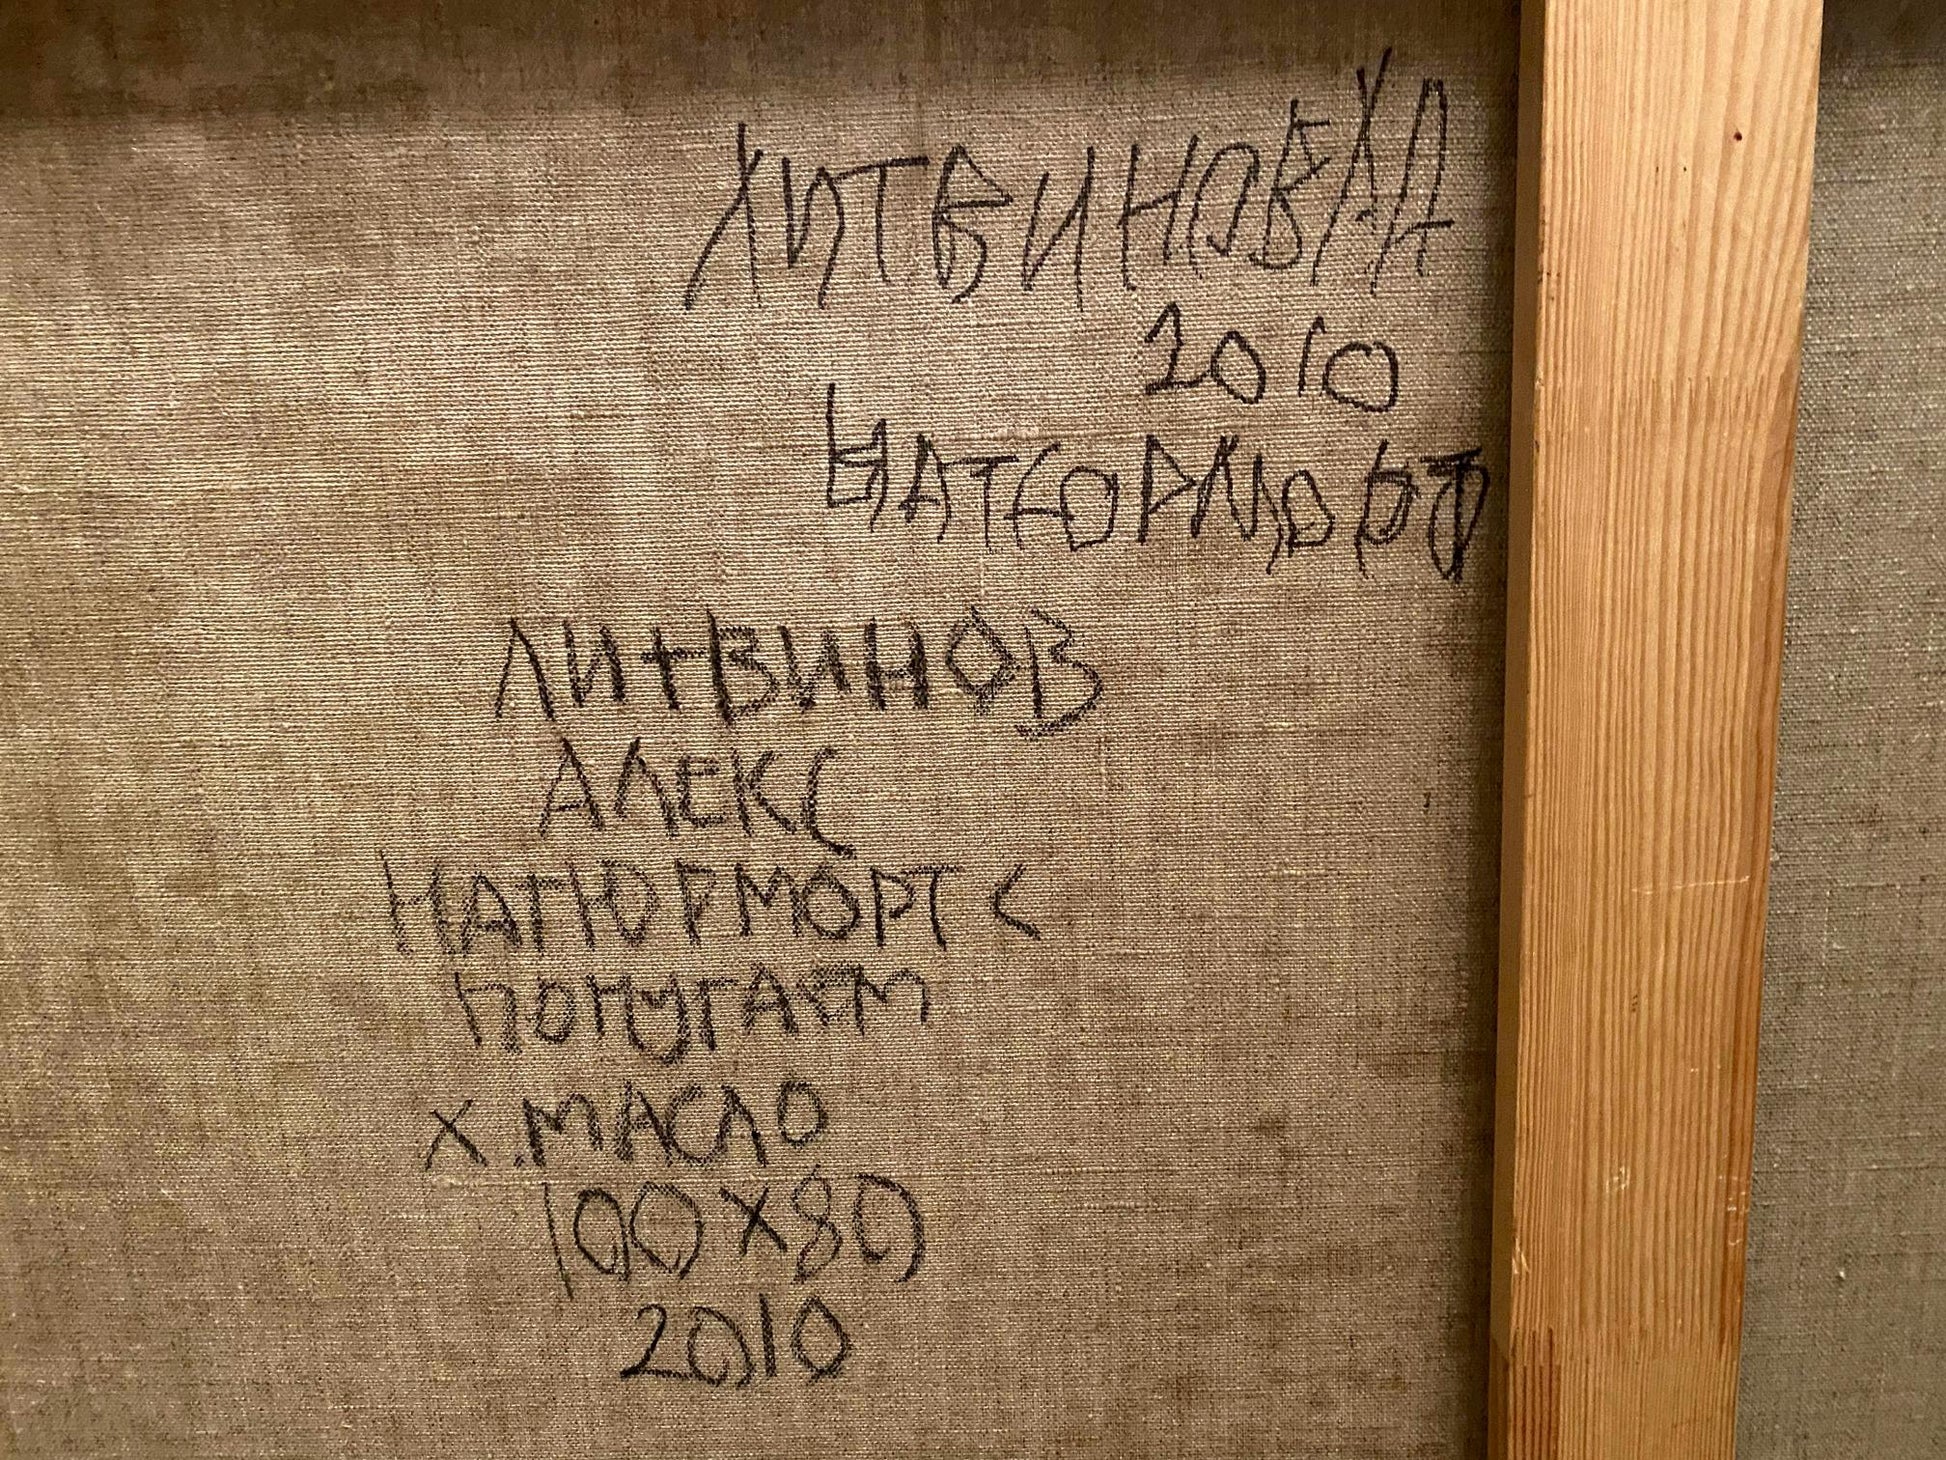 ЛИТВИНОВ АЛ
2010
НАТЮРМОРТ
ЛИТВИНОВ
АЛЕКС
НАТЮРМОРТ С
ПОПУГАЕМ
Х.МАСЛО
100Х80
2010